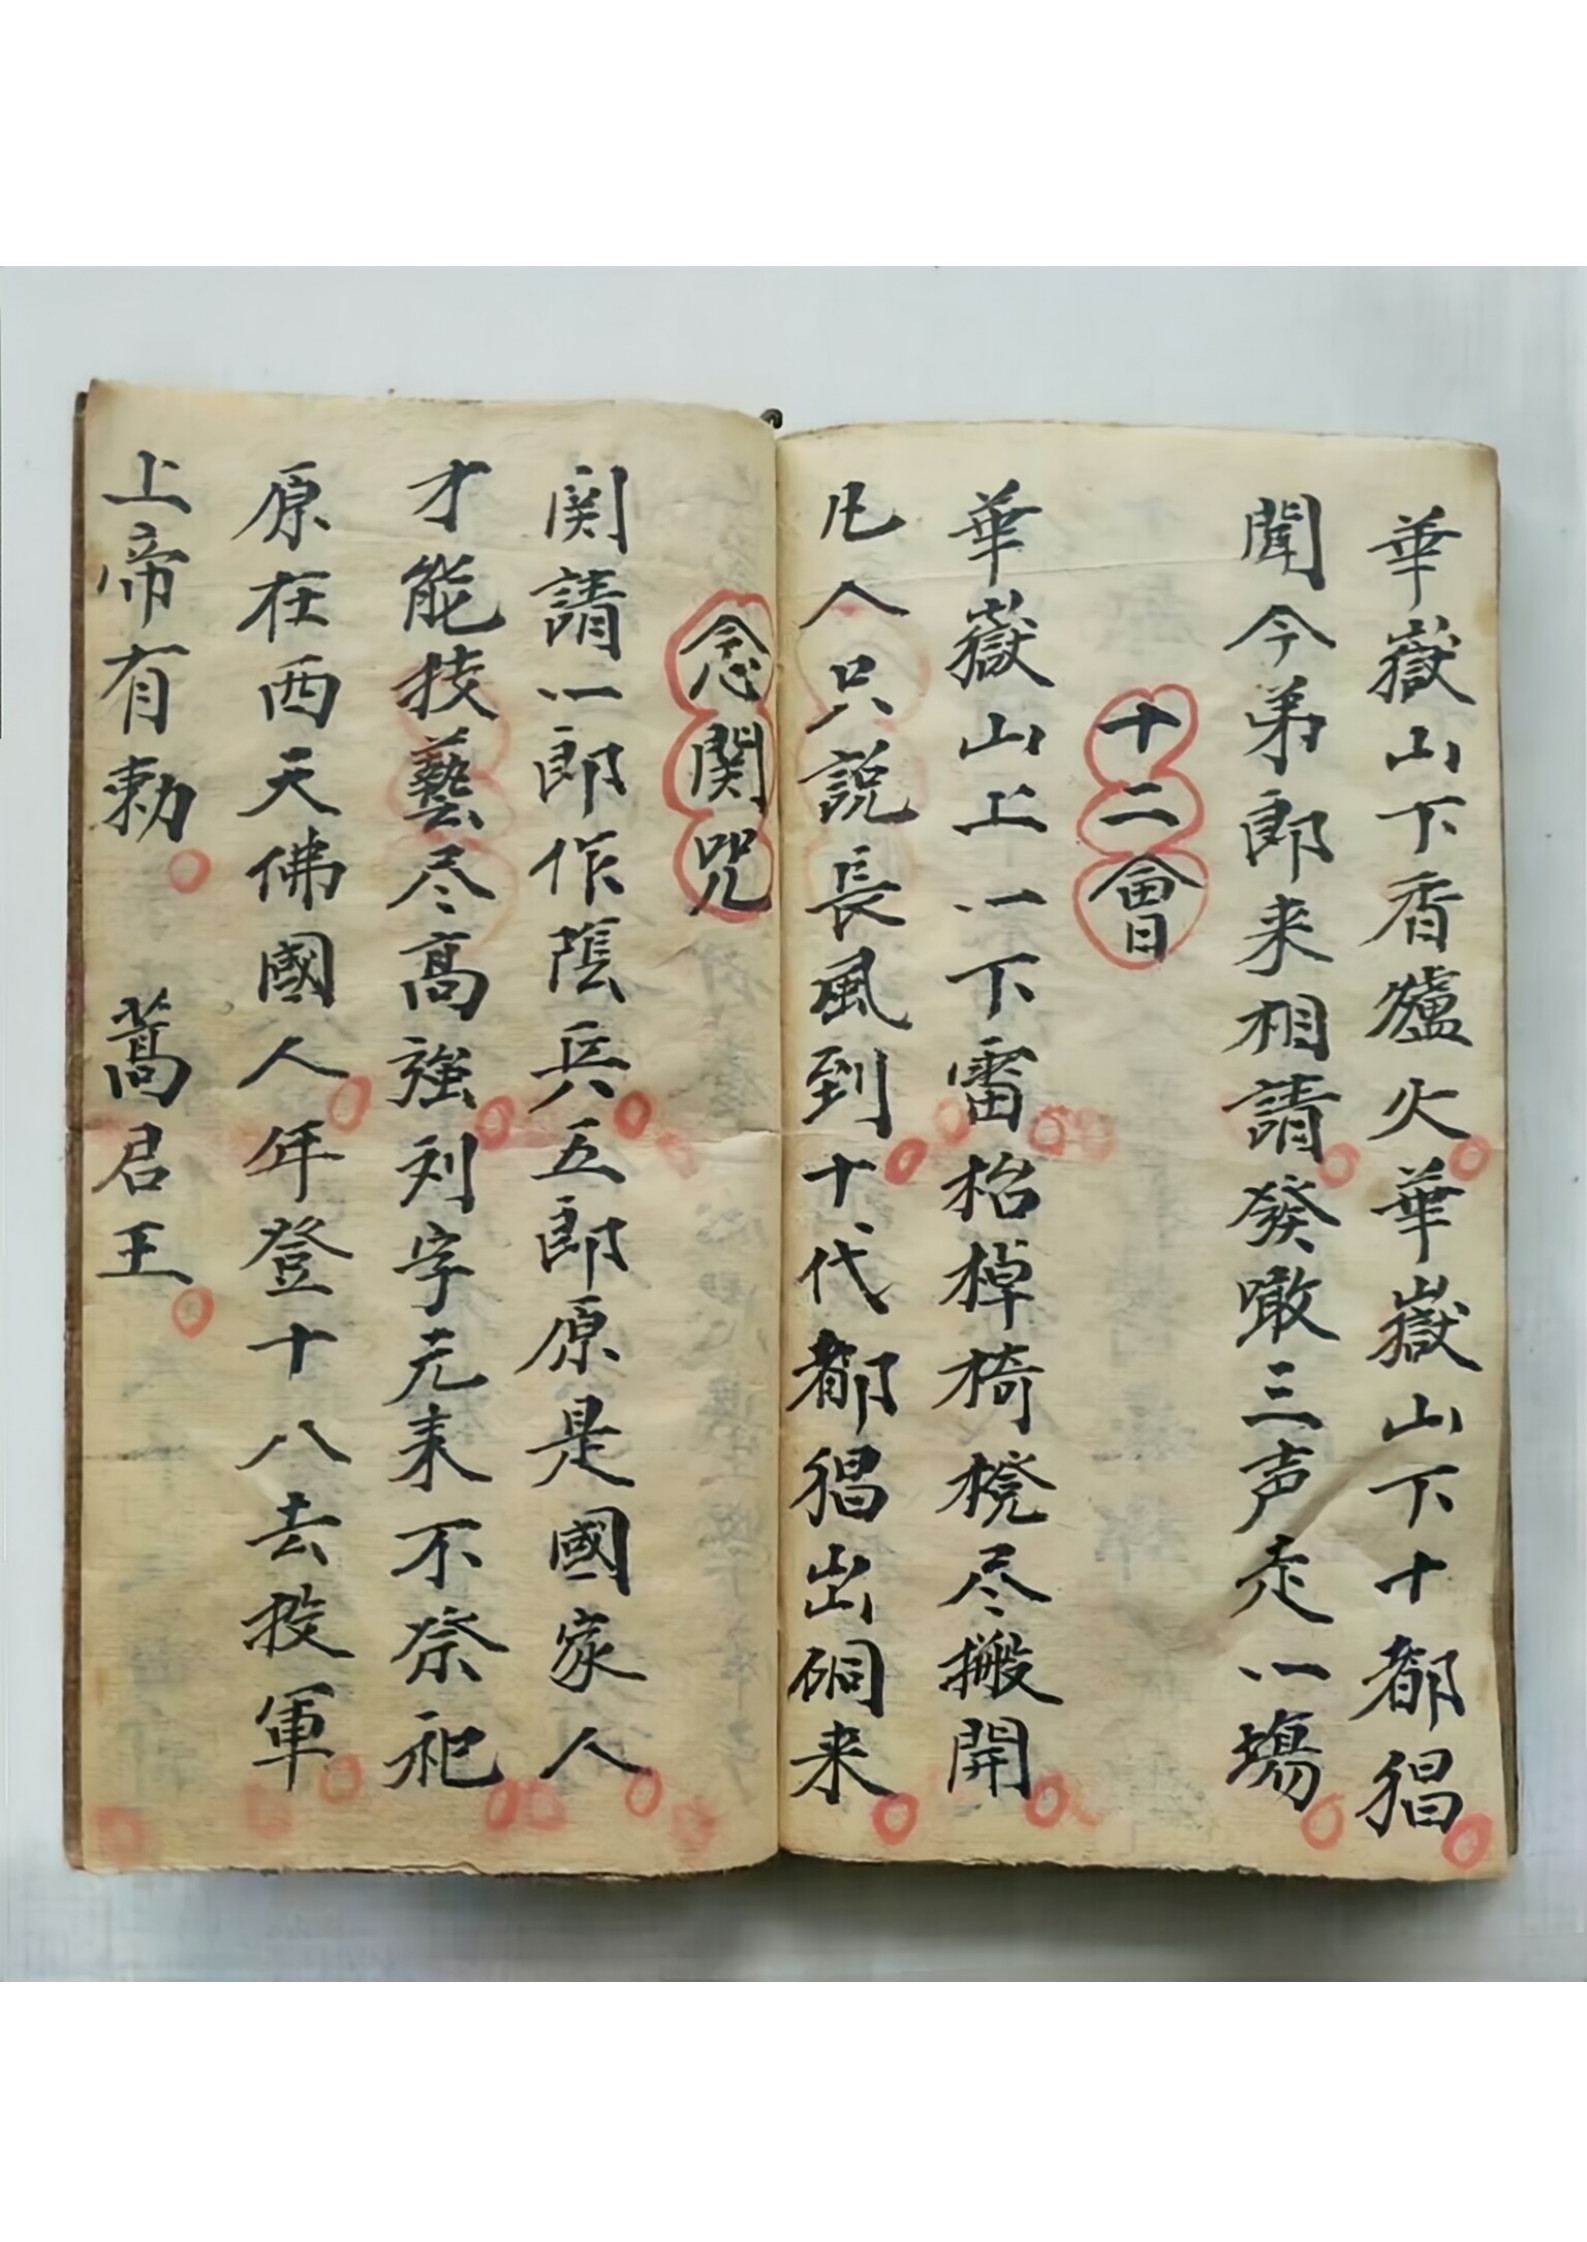 華嶽山下香爐火華嶽山下十都猖
聞今弟郎来相請發噉三声走一場
十二會
華嶽山上一下雷枱棹椅櫈尽搬開
凡人只説長風到十代都猖出硐来
念関咒
関請一郎作陰兵五郎原是國家人
才能技藝尽高強列字元来不祭祀
原在西天佛國人年登十八去投軍
上帝有勅 蒿君王